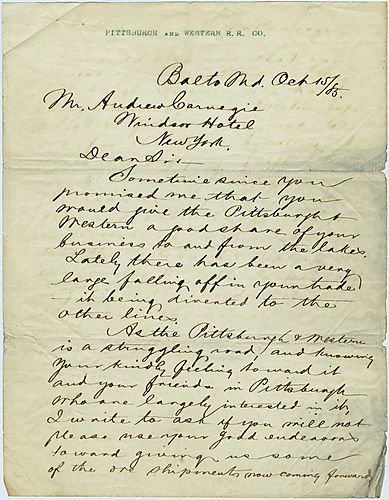 PITTSBURGH AND WESTERN R. R. CO.
Balto Md. Oct 15/85.
Mr. Andrew Carnegie
Windsor Hotel
New York.
Dear Sir
Sometime since you
promised me that you
would give the Pittsburgh &
Western a good share of your
business to and from the lakes.
Lately there has been a very
large falling off in your trade
– it being diverted to the
other lines.
As the Pittsburgh & Western
is a struggling road, and knowing
your kindly feeling toward it
and your friends in Pittsburgh
who are largely interested in it,
I write to ask if you will not
please use your good endeavors
toward giving us some
of the ore shipments now coming forward